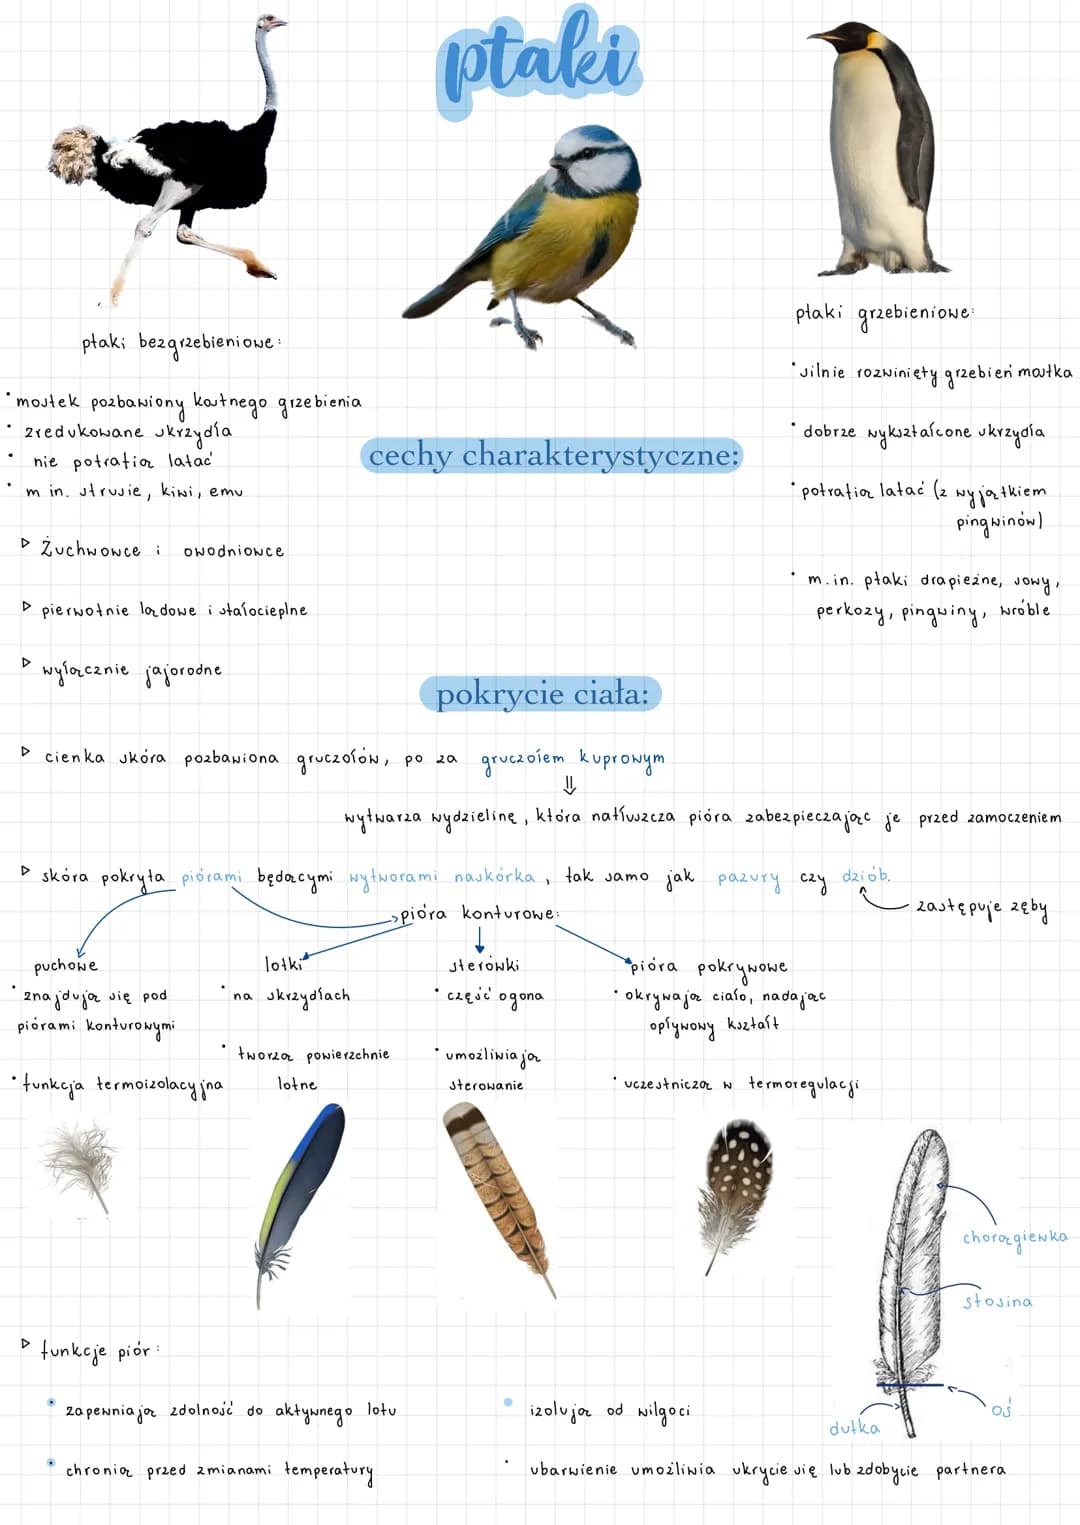 ptaki
ptaki bezgrzebieniowe:
• mostek pozbawiony kostnego grzebienia
• zredukowane skrzydła
• nie potrafią latać
• m in. strusie, kiwi, emu
ptaki grzebieniowe:
• silnie rozwinięty grzebień mostka
• dobrze wykształcone skrzydła
• potrafią latać (z wyjątkiem
pingwinów)
• m.in. ptaki drapieżne, sowy,
perkozy, pingwiny, wróble
cechy charakterystyczne:
▷ Żuchwowce i owodniowce
▷ pierwotnie lądowe i stałocieplne
▷ wyłącznie jajorodne
pokrycie ciała:
▷ cienka skóra pozbawiona gruczołów, po za gruczołem kuprowym
⇓
wytwarza wydzielinę, która natłuszcza pióra zabezpieczając je przed zamoczeniem
▷ skóra pokryta piórami będącymi wytworami naskórka, tak samo jak pazury czy dziób.
zastępuje zęby
pióra konturowe:
puchowe
• znajdują się pod
piórami konturowymi
• funkcja termoizolacyjna
lotki
• na skrzydłach
• tworzą powierzchnie
lotne
sterówki
• część ogona
• umożliwiają
sterowanie
pióra pokrywowe
• okrywają ciało, nadając
opływowy kształt
• uczestniczą w termoregulacji
chorągiewka
stosina
oś
dutka
▷ funkcje piór:
• zapewniają zdolność do aktywnego lotu
• chronią przed zmianami temperatury
• izolują od wilgoci
• ubarwienie umożliwia ukrycie się lub zdobycie partnera